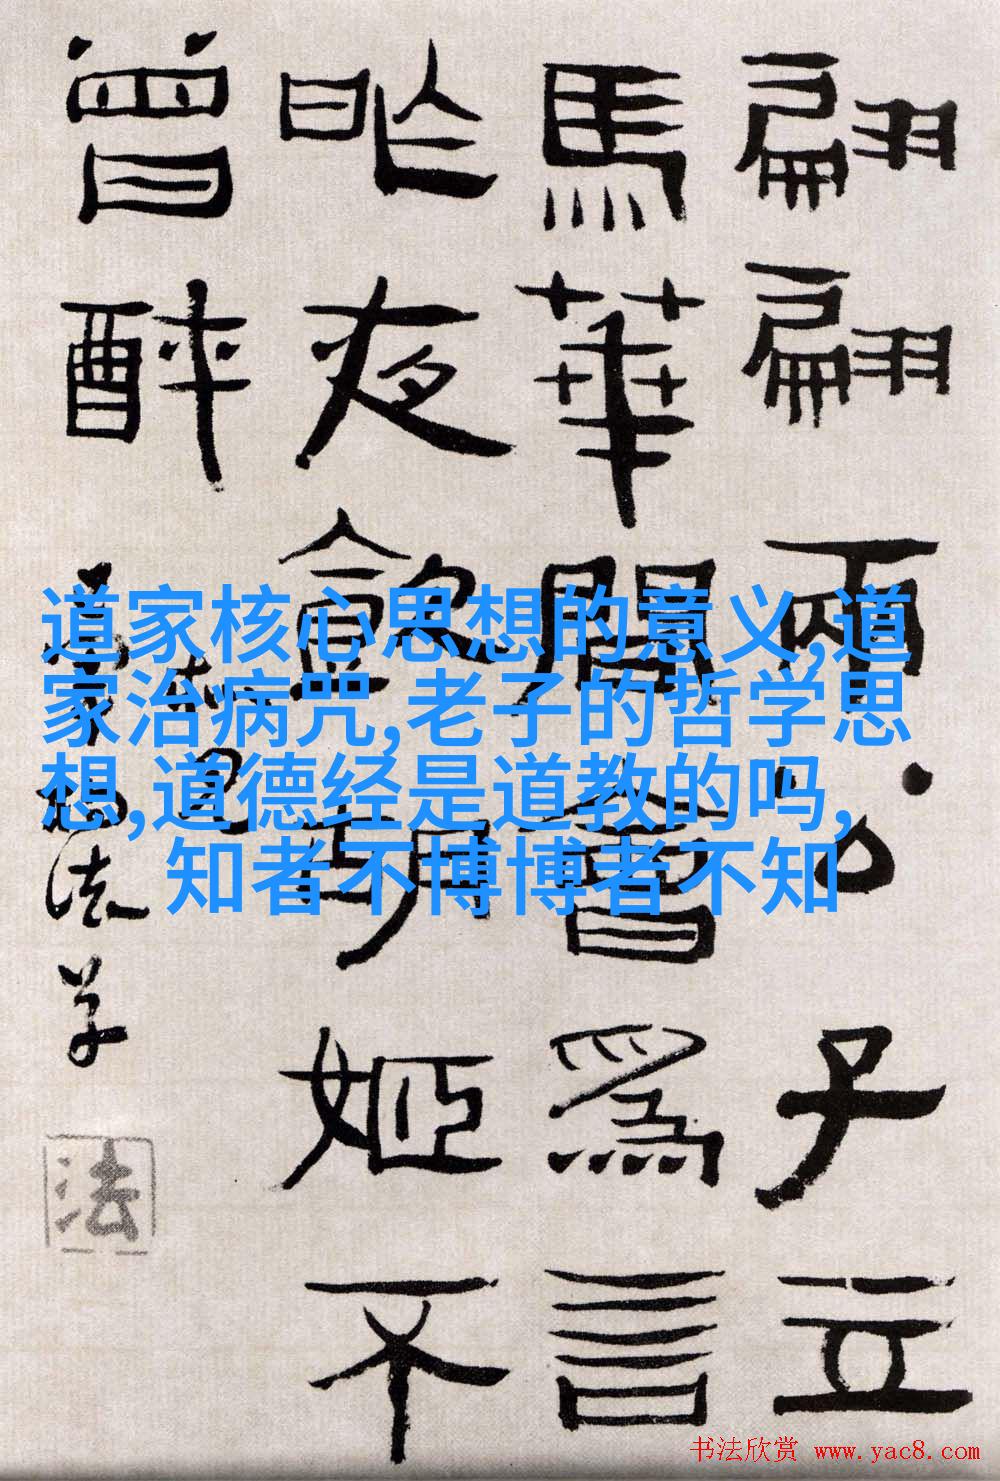 翩翩兩公子立
馬華間會為言
昨夜飲胡姬不
曾醉
法
道家核心思想的意义,道
家治病咒,老子的哲学思
想,道德经是道教的吗,
知者不博博者不知
书法欣赏 www.yac8.com